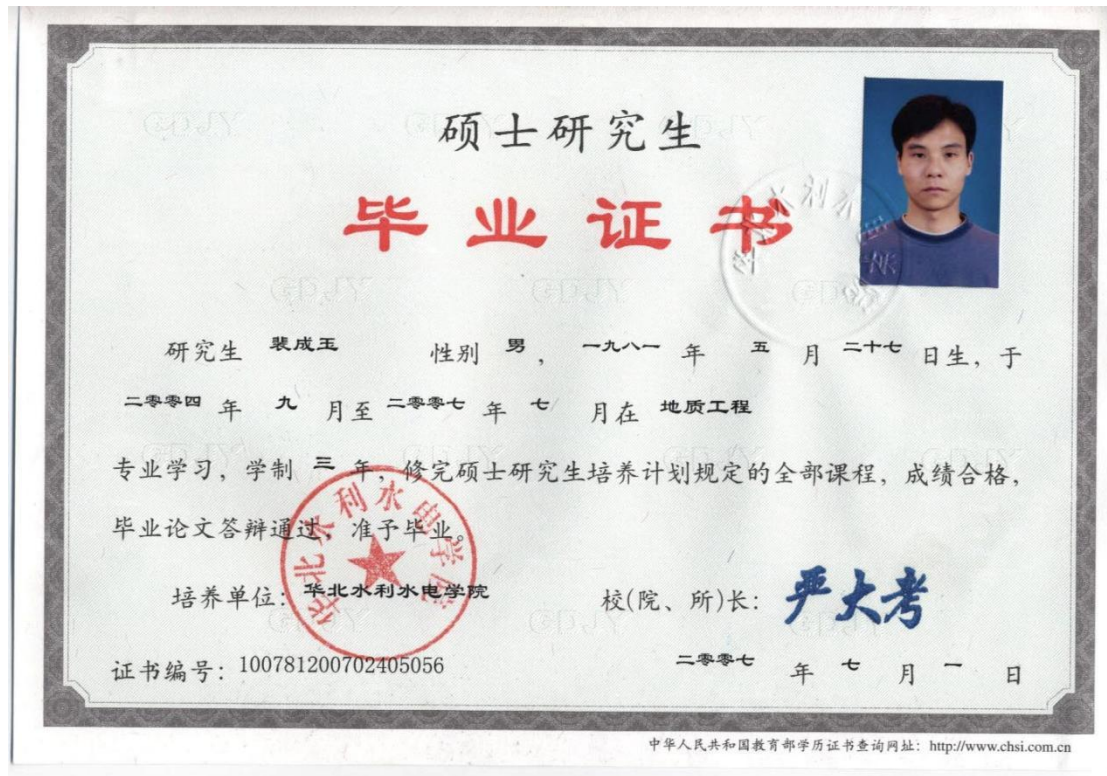 硕士研究生
毕业证书
研究生 裴成玉 性别 男, 一九八一 年 五 月 二十七 日生, 于
二零零四 年 九 月至 二零零七 年 七 月在 地质工程
专业学习, 学制 三 年, 修完硕士研究生培养计划规定的全部课程, 成绩合格,
毕业论文答辩通过, 准予毕业。
华北水利水电学院
培养单位: 华北水利水电学院 校(院、所)长: 严大考
证书编号: 100781200702405056 二零零七 年 七 月 一 日
中华人民共和国教育部学历证书查询网址: http://www.chsi.com.cn